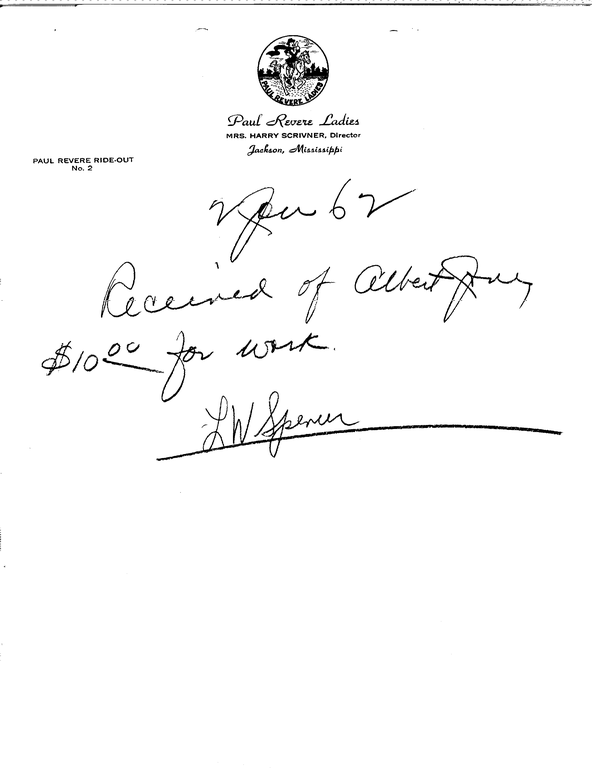 PAUL REVERE LADIES
Paul Revere Ladies
MRS. HARRY SCRIVNER, Director
Jackson, Mississippi
PAUL REVERE RIDE-OUT
No. 2
2 Jan 62
Received of Albert Jones
$10.00 for work.
LW Spencer